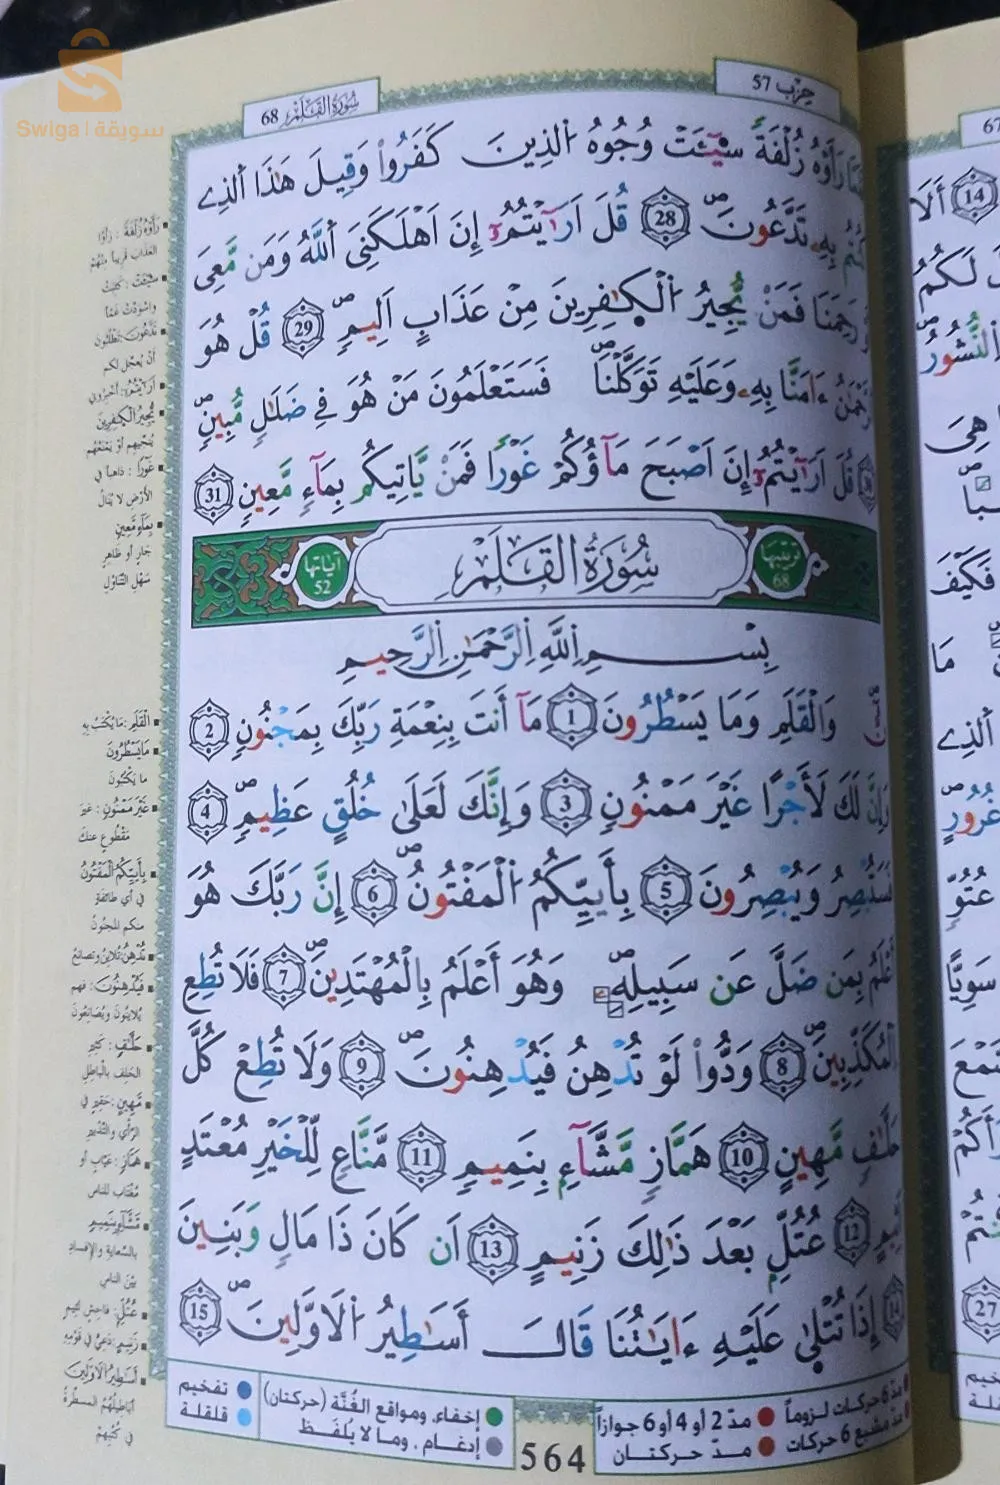 Swiga | سويقة
سُورَةُ القَلَمِ 68
حِزْب 57
رَأَوْهُ زُلْفَةً سِيٓـَٔتْ وُجُوهُ اُ۬لذِينَ كَفَرُواْ وَقِيلَ هَٰذَا اَ۬لذِے
بِهِۦ تَدَّعُونَۖ 28 قُلَ اَرَٰٓيْتُمُۥٓ إِنَ اَهْلَكَنِىَ اَ۬للَّهُ وَمَن مَّعِىَ
رَحِمَنَا فَمَنْ يُّجِيرُ اُ۬لْكَٰفِرِينَ مِنْ عَذَابٍ اَلِيمٍۖ 29 قُلْ هُوَ
ءَامَنَّا بِهِۦ وَعَلَيْهِ تَوَكَّلْنَاۖ فَسَتَعْلَمُونَ مَنْ هُوَ فِے ضَلَٰلٍ مُّبِينٍۖ
قُلَ اَرَٰٓيْتُمُۥٓ إِنَ اَصْبَحَ مَآؤُكُمْ غَوْرًا فَمَنْ يَّاتِيكُم بِمَآءٍ مَّعِينٍۖ 31
ترتيبها 68 سُورَةُ القَلَمِ آياتها 52
بِسْمِ اِ۬للَّهِ اِ۬لرَّحْمَٰنِ اِ۬لرَّحِيمِ
وَالْقَلَمِ وَمَا يَسْطُرُونَ 1 مَآ أَنتَ بِنِعْمَةِ رَبِّكَ بِمَجْنُونٍ 2
وَإِنَّ لَكَ لَأَجْرًا غَيْرَ مَمْنُونٍ 3 وَإِنَّكَ لَعَلَىٰ خُلُقٍ عَظِيمٍۖ 4
فَسَتُبْصِرُ وَيُبْصِرُونَ 5 بِأَييِّكُمُ اُ۬لْمَفْتُونُۖ 6 إِنَّ رَبَّكَ هُوَ
أَعْلَمُ بِمَن ضَلَّ عَن سَبِيلِهِۦۖ وَهُوَ أَعْلَمُ بِالْمُهْتَدِينَۖ 7 فَلَا تُطِعِ
اِ۬لْمُكَذِّبِينَۖ 8 وَدُّواْ لَوْ تُدْهِنُ فَيُدْهِنُونَۖ 9 وَلَا تُطِعْ كُلَّ
حَلَّافٍ مَّهِينٍ 10 هَمَّازٍ مَّشَّآءٍ بِنَمِيمٍ 11 مَّنَّاعٍ لِّلْخَيْرِ مُعْتَدٍ
اَثِيمٍ 12 عُتُلٍّ بَعْدَ ذَٰلِكَ زَنِيمٍ 13 اَن كَانَ ذَا مَالٍ وَبَنِينَ
14 إِذَا تُتْلَىٰ عَلَيْهِ ءَايَٰتُنَا قَالَ أَسَٰطِيرُ اُ۬لَاوَّلِينَۖ 15
رَأَوْهُ زُلْفَةً : رَأَوْا
العَذَابَ قَرِيباً مِنْهُمْ
سِيئَتْ : كَئِبَتْ
وَاسْوَدَّتْ غَمًّا
تَدَّعُونَ : تَطْلُبُونَ
أَنْ يُعَجَّل لكم
أَرَايْتُمُ : أَخْبِرُونِي
يُجِيرُ الكَافِرِينَ
يُنَجِّيهِم أَوْ يَمْنَعُهُم
غَوْرًا : ذاهباً في
الأَرْضِ لا يُنَالُ
بِمَاءٍ مَّعِينٍ
جَارٍ أو ظاهِرٍ
سَهْلِ التَّنَاوُلِ
القَلَمِ : مَا يُكْتَبُ بِهِ
مَا يَسْطُرُونَ
ما يَكْتُبُونَ
غَيْرَ مَمْنُونٍ : غَيرَ
مَقْطُوعٍ عنكَ
بِأَييِّكُمُ الْمَفْتُونُ
في أي طائفةٍ
منكم المجنُونُ
تُدْهِنُ : تُلَايِنُ وتصانعُ
فَيُدْهِنُونَ : فهم
يُلَايِنُونَ ويُصَانِعُونَ
حَلَّافٍ : كَثِيرِ
الحَلِفِ بالبَاطِلِ
مَهِينٍ : حَقِيرٍ في
الرَّأْيِ والتَّدْبِيرِ
هَمَّازٍ : عَيَّابٍ أو
مُغْتَابٍ للنَّاسِ
مَشَّاءٍ بِنَمِيمٍ
بالسِّعَايَةِ والإِفْسَادِ
بَيْنَ الناسِ
عُتُلٍّ : فاحِشٍ لئيمٍ
زَنِيمٍ : دَعِيٍّ في قَوْمِهِ
أَسَاطِيرُ الأَوَّلِينَ
أَبَاطِيلُهُمُ المسطَّرةُ
في كُتُبِهِمْ
مدّ 6 حركات لزوماً مدّ 2 أو 4 أو 6 جوازاً
مدّ مشبع 6 حركات مدّ حركتان
564
إخفاء، ومواقع الغُنَّة (حركتان) تفخيم
إدغام، وما لا يُلفَظ قلقلة
14 أَلَا
لَكُمُ
النُّشُورُ
هِيَ
فَكَيْفَ
مَا
الَّذِے
غُرُورٍ
عُتُوٍّ
سَوِيًّا
27